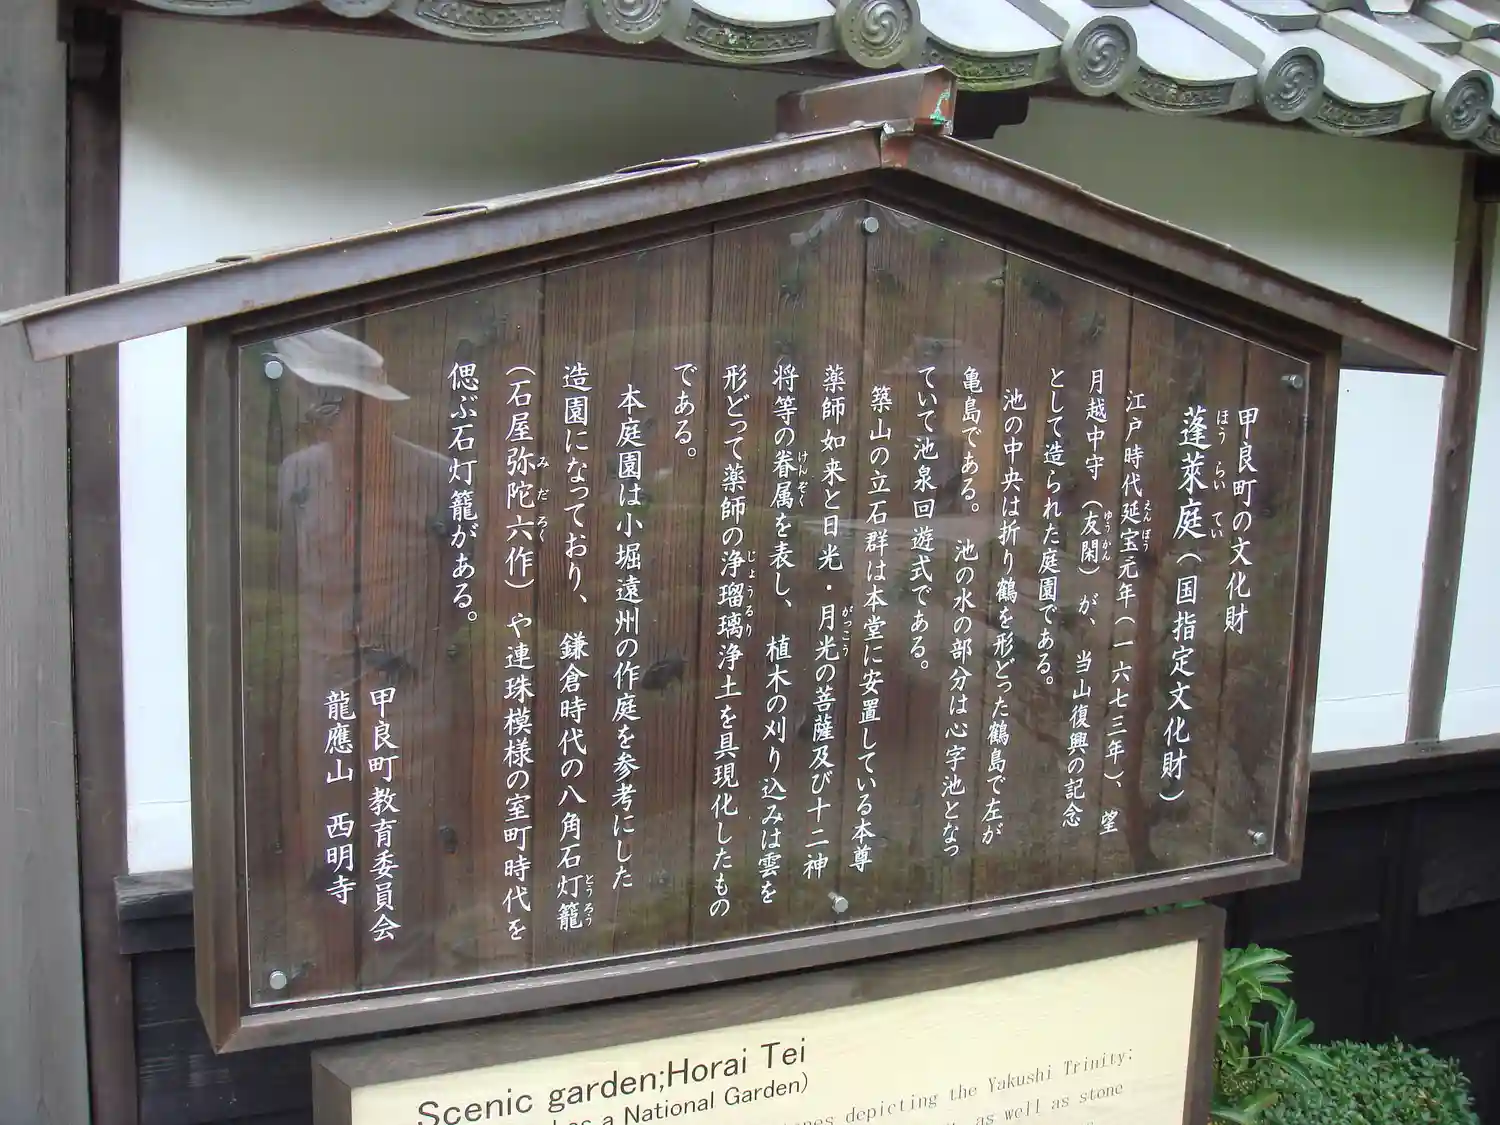 甲良町の文化財
蓬萊庭（国指定文化財）
ほう らい てい
江戸時代延宝元年（一六七三年）、望
えんぽう
月越中守（友閑）が、当山復興の記念
ゆうかん
として造られた庭園である。
池の中央は折り鶴を形どった鶴島で左が
亀島である。 池の水の部分は心字池となっ
ていて池泉回遊式である。
築山の立石群は本堂に安置している本尊
薬師如来と日光・月光の菩薩及び十二神
がっこう
将等の眷属を表し、 植木の刈り込みは雲を
けんぞく
形どって薬師の浄瑠璃浄土を具現化したもの
じょうるり
である。
本庭園は小堀遠州の作庭を参考にした
造園になっており、 鎌倉時代の八角石灯籠
とうろう
（石屋弥陀六作）や連珠模様の室町時代を
みだろく
偲ぶ石灯籠がある。
甲良町教育委員会
龍應山 西明寺
Scenic garden;Horai Tei
as a National Garden)
depicting the Yakushi Trinity;
as well as stone